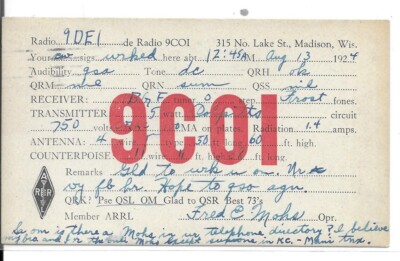 Radio 9DE1 de Radio 9COI 315 No. Lake St., Madison, Wis.
Your cw sigs. wrked here abt 12:45AM Aug 13 1924
Audibility qsa Tone dc QRH ok
QRM nil QRN sum QSS nil
RECEIVER: tuner 0 step. Frost fones.
TRANSMITTER 5 watt. circuit
750 volts MA on plates. Radiation 1.4 amps.
ANTENNA: 4 wire, type 50 ft. long 60 ft. high.
COUNTERPOISE: wire, ft. long. ft. high.
9COI
Remarks Gld to wrk u om. Ur
vy fb hr. Hope to qso agn.
QRK? Pse QSL OM Glad to QSR Best 73's
Member ARRL Fred C. Mohs Opr.
ARRL
Sa om is there a Mohs in ur telephone directory? I believe
my bro and f r the only Mohs except sumone in K.C. - Mani tnx.